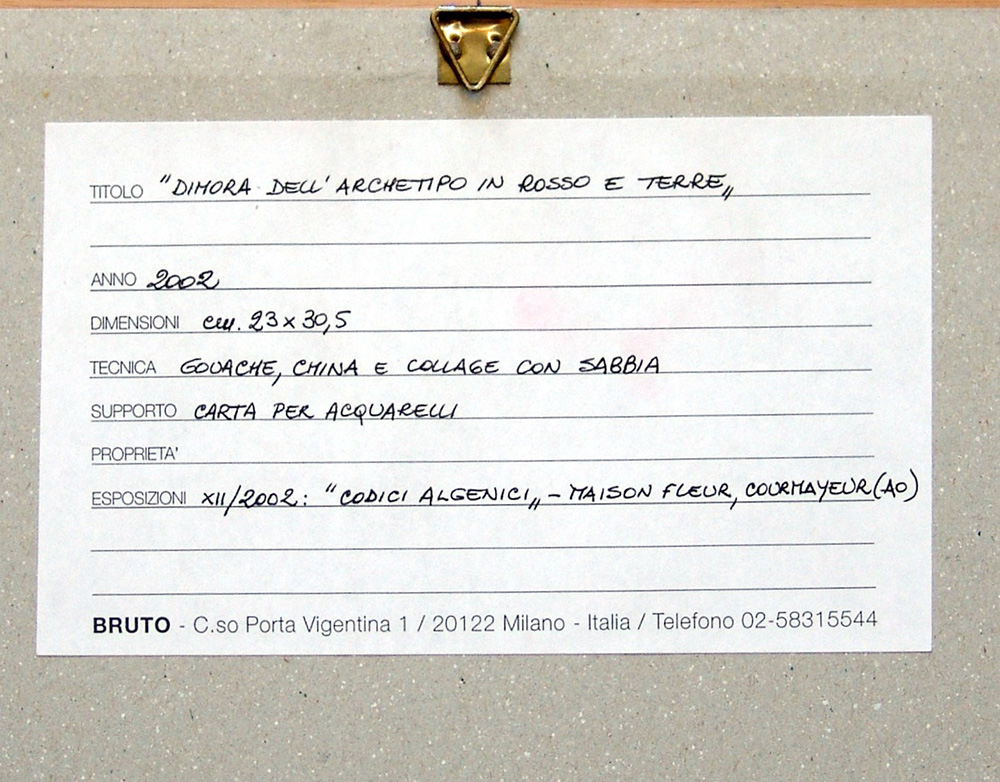 TITOLO "DIMORA DELL'ARCHETIPO IN ROSSO E TERRE„
ANNO 2002
DIMENSIONI cm. 23 x 30,5
TECNICA GOUACHE, CHINA E COLLAGE CON SABBIA
SUPPORTO CARTA PER ACQUARELLI
PROPRIETA'
ESPOSIZIONI XII/2002: "CODICI ALGENICI„ - MAISON FLEUR, COURMAYEUR (AO)
BRUTO - C.so Porta Vigentina 1 / 20122 Milano - Italia / Telefono 02-58315544